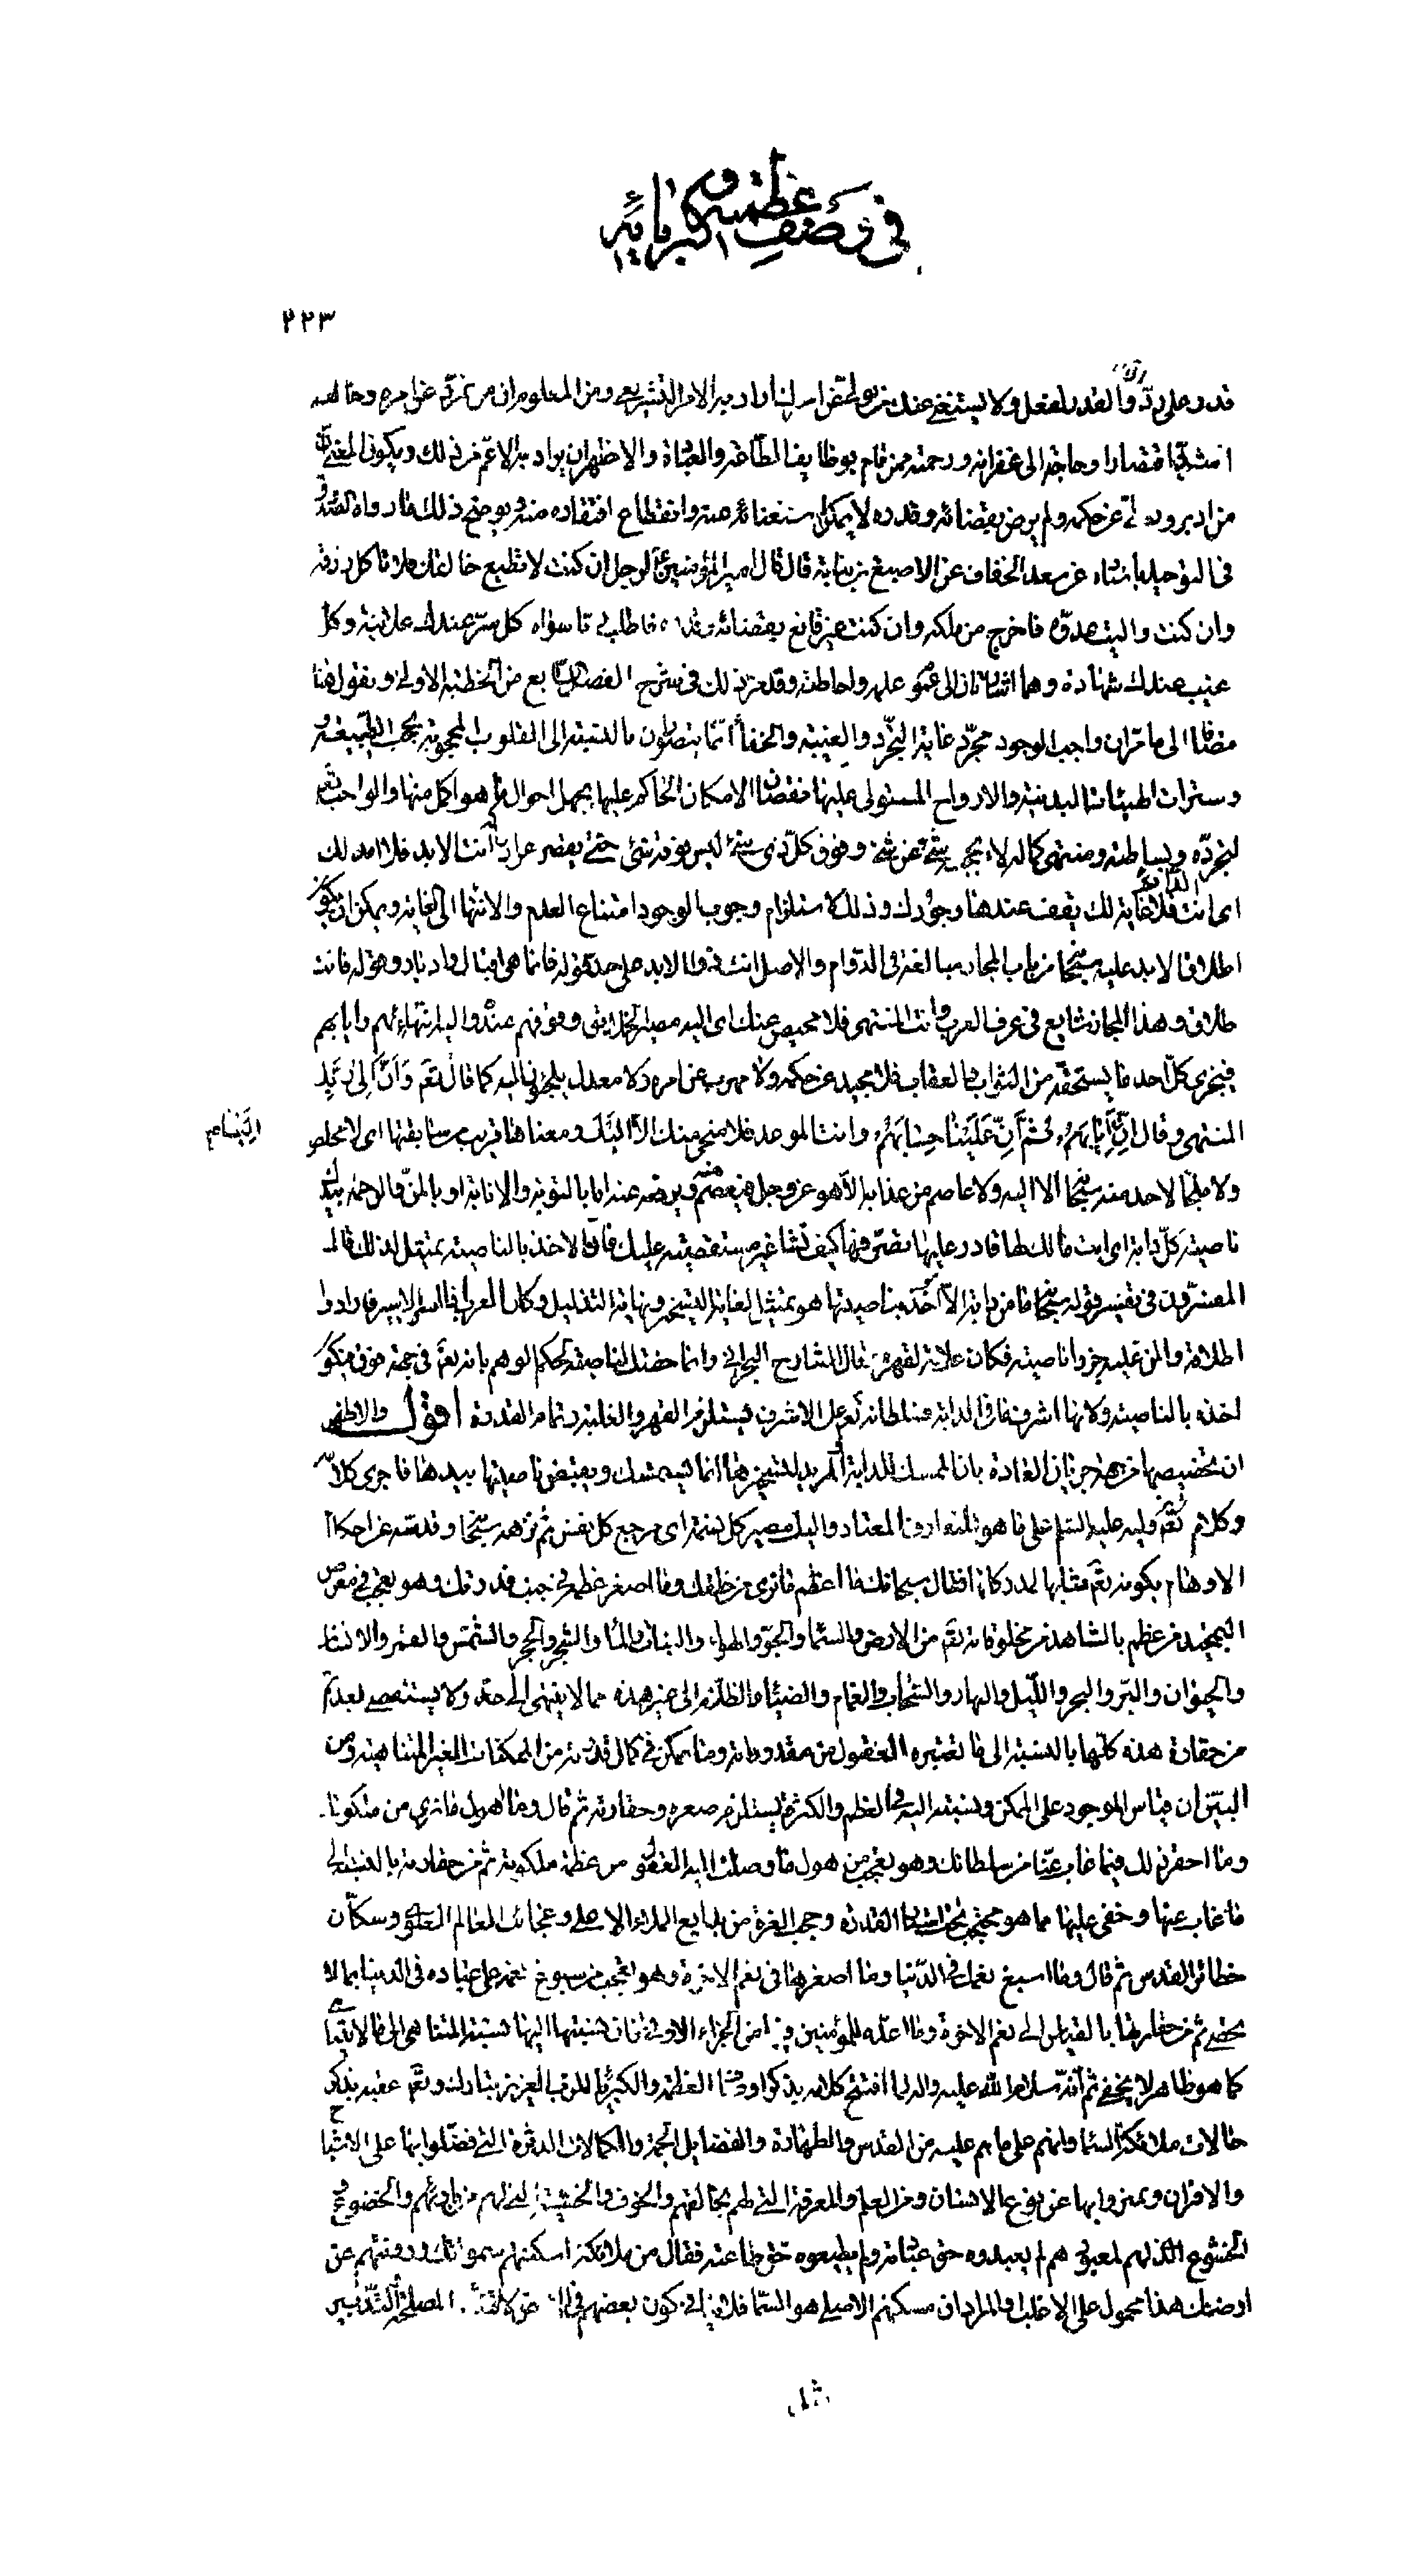 في وصف عظمته و كبريائه
٢٢٣
قدر على ردّ والقدر لفعل ولا يستغنى عنك من تولّى عن امرك اراد به الامر التشريعى ومن المعلوم ان من تمرّد عن امره وخالفه
اشدّ افتقارا وحاجة الى غفرانه ورحمته ممن قام بوظايف الطّاعة والعبادة والاظهر ان يراد به الاعمّ من ذلك ويكون المعنى انّ
من ادبر وتولّى عن حكمه ولم يرض بقضائه وقدره لا يمكن استغنائه عنه وانقطاع افتقاره منه ويوضح ذلك ما رواه الصّدوق
فى التوحيد باسناده عن سعد الخفاف عن الاصبغ بن نباتة قال قال امير المؤمنين لرجل ان كنت لا تطيع خالقك فلا تاكل رزقه
وان كنت واليت عدوّه فاخرج من ملكه وان كنت غير قانع بقضائه وقدره فاطلب ربّا سواه كل سرّ عندك علانية وكل
غيب عندك شهادة وهما اشارتان الى عموم علمه واحاطته وقد مرّ ذلك فى شرح الفصل السّابع من الخطبة الاولى ونقول هنا
مضافا الى ما مرّ ان واجب الوجود مجرّد غاية التجرّد والغيبة والخفاء انّما يتصوّران بالنسبة الى القلوب المحجوبة بحجب الطّبيعة و
وسترات الهيئات البدنية والارواح المستولى عليها نقصان الامكان الحاكم عليها بجهل احوال ما هو اكمل منها والواجب تعالى
لتجرّده وبساطته ومنتهى كماله لا يحجبه شيء عن شيء وفوق كلّ ذى شيء ليس فوقه شيء حتّى يقصر عن ادراكه انت الابد فلا امد لك
اى انت الدائم فلا غاية لك يقف عندها وجودك وذلك لاستلزام وجوب الوجود امتناع العدم والانتهاء الى الغاية ويمكن ان يكون
اطلاق الابد عليه سبحانه من باب المجاز مبالغة فى الدّوام والاصل انت ذو الابد على حد قوله فانّما هى اقبال وادبار وقوله فانت
طلاق وهذا المجاز شايع فى عرف العرب وانت المنتهى فلا محيص عنك اى اليه مصير الخلايق وموقفهم عنده واليه انتهاءهم وايابهم
فيجزى كلّ احد ما يستحقّه من الثواب والعقاب فلا محيد عن حكمه ولا مهرب عن امره ولا معدل يلجؤن اليه كما قال تعالى وَاَنَّ اِلى رَبِّكَ
المنتهى وقال اِنَّ اِلَيْنا اِيابَهُمْ ثُمَّ اِنَّ عَلَيْنا حِسابَهُمْ وانت الموعد فلا منجى منك الّا اليك ومعناها قريب من سابقتها اى لا مخلص
ولا ملجأ لاحد منه سبحانه الا اليه ولا عاصم من عذابه الّا هو عزوجل فيعصم منه ويرفعه عنه امّا بالتوبة والانابة او بالمنّ والرحمة بيدك
ناصية كلّ دابة اى انت مالك لها قادر عليها تصرّفها كيف تشاء غير مستعصية عليك فانّ الاخذ بالناصية تمثيل لذلك قال
المفسّرون فى تفسير قوله سبحانه ما من دابة الّا هو آخذ بناصيتها هو تمثيل لغاية التسخير ونهاية التذليل وكان العرب اذا اسروا الاسير فارادوا
اطلاقه والمنّ عليه جزوا ناصيته فكان علامة لقهره قال الشارح البحراني وانّما خصّت الناصية لحكم الوهم بانه تعالى فى جهة فوق فيكون
اخذه بالناصية ولانها اشرف ما فى الدابة فسلطانه تعالى على الاشرف يستلزم القهر والغلبة وتمام القدرة اقول والاظهر
ان تخصيصها من جهة جريان العادة بان الممسك للدابة المريد لتسخيرها انما يستمسك ويقبض ناصيتها بيده فاجرى كلامه
وكلام تعالى وليه عليه السّلم على ما هو المعتاد واليك مصير كل نسمة اى مرجع كل نفس ثم نزهه سبحانه وقدّسه عن احكام
الاوهام بكونه تعالى مشابها لمدركاتها فقال سبحانك ما اعظم ما نرى من خلقك وما اصغر عظمه فى جنب قدرتك وهو تعجب فى معرض
التمجيد من عظم ما نشاهد من مخلوقاته تعالى من الارض والسّماء والجوّ والهواء والنبات والماء والشجر والحجر والشّمس والقمر والانسان
والحيوان والبرّ والبحر واللّيل والنهار والسّحاب والغمام والضياء والظلام الى غير هذه مما لا ينتهى الى حد ولا يستقصى بعد ثم
من حقارة هذه كلّها بالنسبة الى ما تعتبره العقول من مقدوراته وما يمكن فى كمال قدرته من الممكنات الغير المتناهية ومن
البيّن ان قياس الموجود على الممكن ونسبته اليه فى العظم والكثرة يستلزم صغره وحقارته ثم قال وما اهول ما نرى من ملكوتك
وما احقر ذلك فيما غاب عنّا من سلطانك وهو تعجب من هول ما وصلت اليه العقول من عظمة ملكوته ثم من حقارته بالنسبة الى
ما غاب عنها وخفى عليها مما هو محتجب تحت استار القدرة وحجب العزة من بدايع الملاء الاعلى وعجائب العالم العلوى وسكّان
حظائر القدس ثم قال وما اسبغ نعمك فى الدّنيا وما اصغرها فى نعم الاخرة وهو تعجب من سبوغ نعمه على عباده فى الدنيا بما لا
يحصى ثم من حقارتها بالقياس الى نعم الاخرة وما اعدّه للمؤمنين فيها من الجزاء الاوفى فان نسبتها اليها نسبة المتناهى الى ما لا يتناهى
كما هو ظاهر لا يخفى ثم انّه سلام الله عليه واله لما افتتح كلامه بذكر اوصاف العظمة والكبرياء للربّ العزيز تبارك وتعالى عقبه بذكر
حالات ملائكة السّماء وانهم على ما هم عليه من القدس والطهارة والفضايل الجمة والكمالات الدثرة التى فضّلوا بها على الاشباح
والاقران وتميزوا بها عن نوع الانسان ومن العلم والمعرفة التى لهم بخالقهم والخوف والخشية التى لهم من بارئهم والخضوع و
الخشوع الذى لهم لمعبودهم لم يعبدوه حق عبادته ولم يطيعوه حق طاعته فقال من ملائكة اسكنتهم سمواتك ورفعتهم عن
ارضك هذا محمول على الاغلب والمراد ان مسكنهم الاصلى هو السّماء فلا ينافى كون بعضهم فى الارض لاقتضاء المصلحة والتّدبير